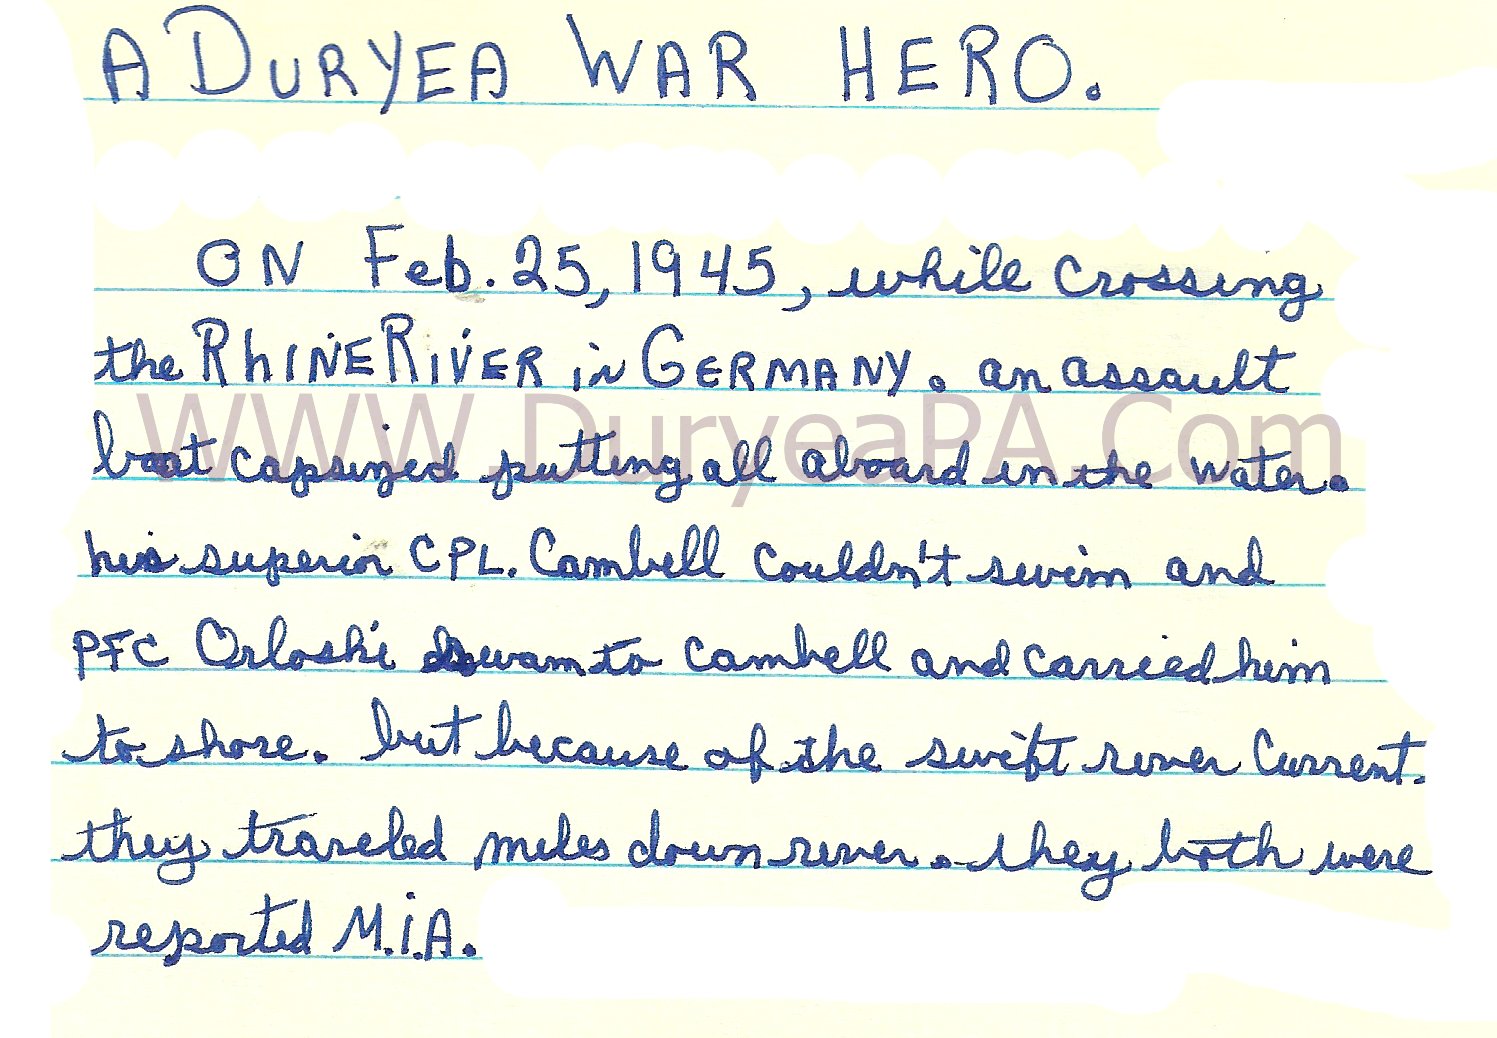 A DURYEA WAR HERO.
ON Feb. 25, 1945, while crossing
the RhINE RIVER in GERMANY. an assault
boat capsized putting all aboard in the water.
his superior CPL. Cambell couldn't swim and
PFC Orloski swam to Cambell and carried him
to shore. but because of the swift river Current.
they traveled miles down river. they both were
reported M.I.A.
WWW.DuryeaPA.Com